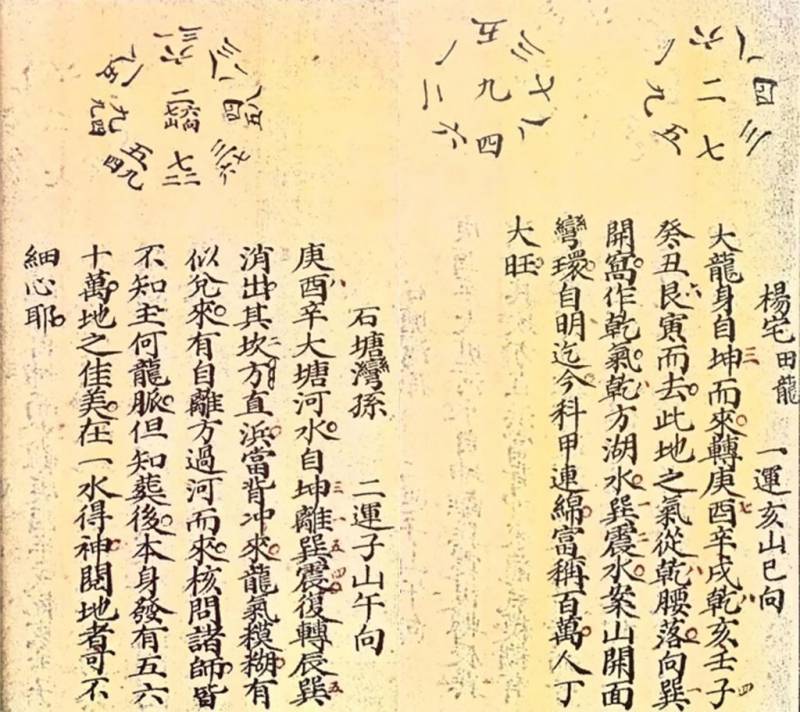 一 六 八
九 二 四
五 七 三
一 五 三
二 九 七
六 四 八
楊宅田龍 一運亥山巳向
大龍身自坤而來轉庚酉辛戌乾亥壬子
癸丑艮寅而去此地之氣從乾腰落向巽
開窩作乾氣乾方湖水巽震水案山開面
彎環自明迄今科甲連綿富稱百萬人丁
大旺
石塘灣孫 二運子山午向
庚酉辛大塘河水自坤離巽震復轉辰巽
消出其坎方直浜當背冲來龍氣模糊有
似兌來有自離方過河而來核問諸師皆
不知主何龍脈但知葬後本身發有五六
十萬地之佳美在一水得神閱地者可不
細心耶